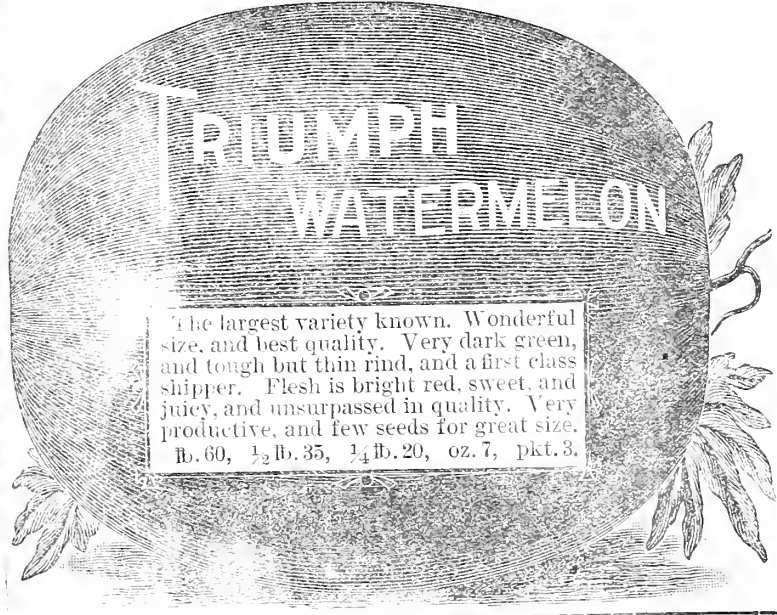 TRIUMPH
WATERMELON
The largest variety known. Wonderful
size, and best quality. Very dark green,
and tough but thin rind, and a first class
shipper. Flesh is bright red, sweet, and
juicy, and unsurpassed in quality. Very
productive, and few seeds for great size.
lb. 60, ½ lb. 35, ¼ lb. 20, oz. 7, pkt. 3.